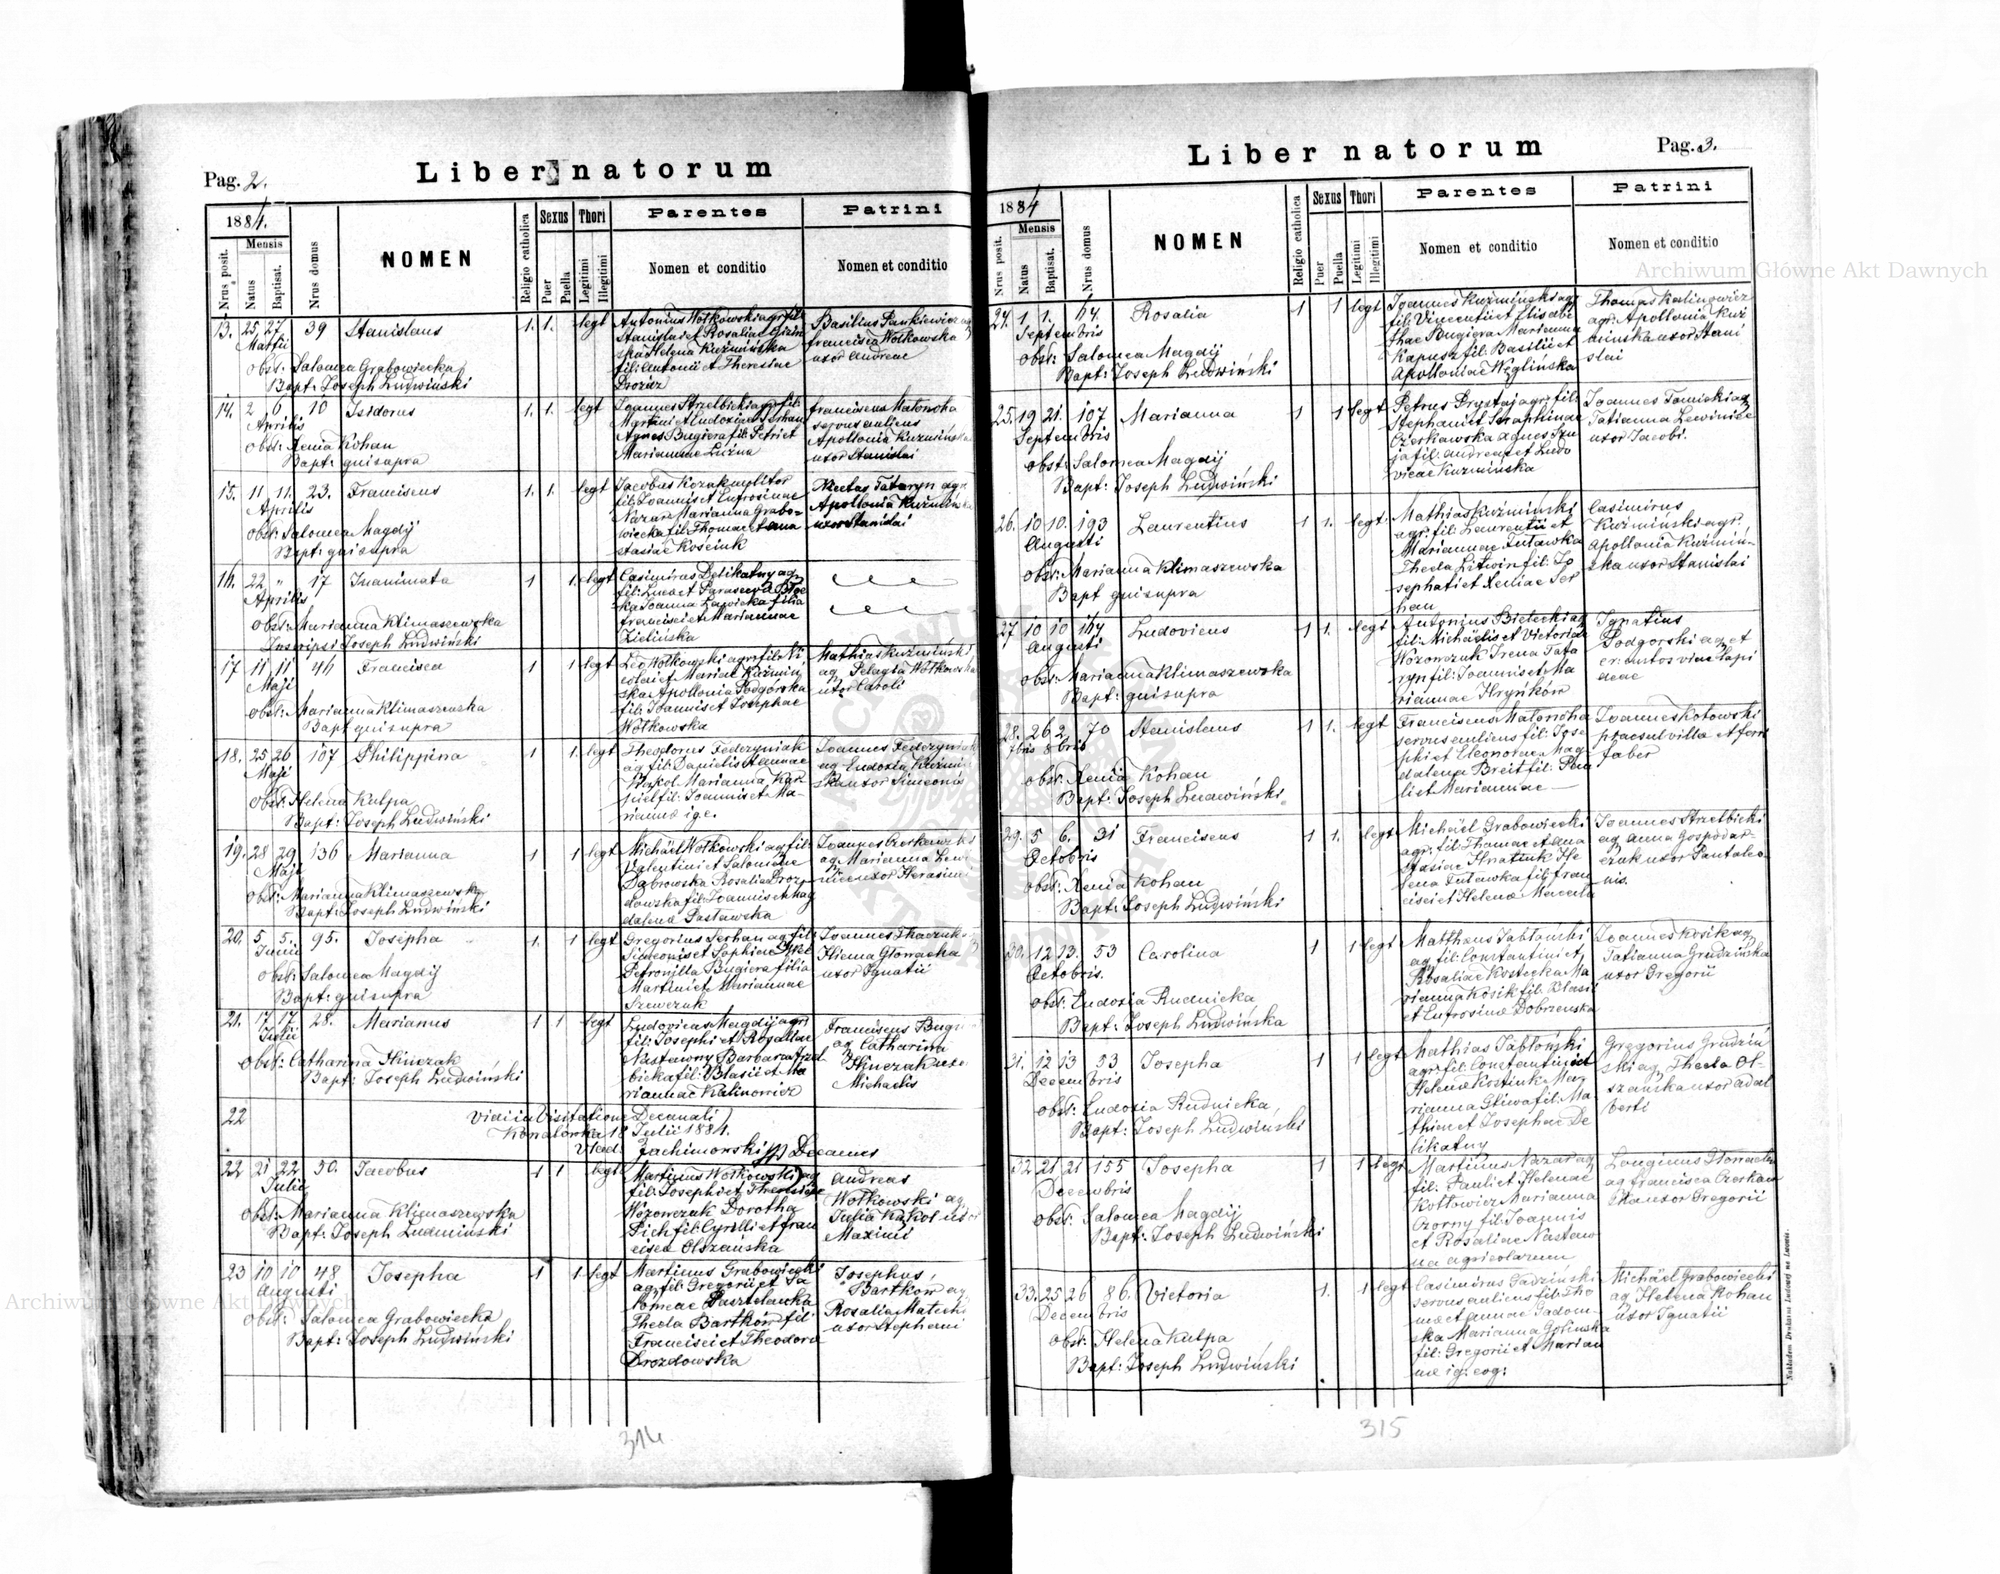 Pag. 2.
Liber natorum
1884.
Mensis
Nrus posit.
Natus
Baptisat.
Nrus domus
NOMEN
Religio catholica
Sexus
Puer
Puella
Thori
Legitimi
Illegitimi
Parentes
Nomen et conditio
Patrini
Nomen et conditio
13. 25 27 39 Stanislaus 1. 1. legt
Martii
Obst: Salomea Grabowiecka
Bapt: Joseph Ludwiński
Antonius Wołkowski agr. fil:
Stanislai et Rosaliae
Helena Kuźmińska
fil: Antonii et Theresiae
Basilius Pankiewicz ag
francisca Wołkowska
uxor Andreae
14. 2 6 10 Isidorus 1. 1. legt
Aprilis
Obst: Xenia Kohan
Bapt: qui supra
Joannes Strzelbicki agr fil:
Martini et Ludoviae Serhan
Agnes Bugiera fil: Petri et
Mariannae Luzna
franciscus Matonoha
servus aulicus
Apollonia Kuzmińska
uxor Stanislai
15. 11 11. 23. Franciscus 1. 1. legt
Aprilis
Obst: Salomea Magdij
Bapt: qui supra
Jacobus Kozak
fil: Joannis et Eufrosinae
Nazar Marianna Grabo-
wiecka fil: Thomae et Ana
stasiae Kościuk
Nicetas Tataryn agr
Apollonia Kuźmińska
uxor Stanislai
16. 22 " 17 Inanimata 1 1. legt
Aprilis
Obst: Marianna Klimaszewska
Inscripsi Joseph Ludwiński
Casimirus Delikatny ag.
fil: Lucae et Parascevae
Joanna Zawicka filia
francisci et Mariannae
Zielińska
17 11 11 46 Francisca 1 1 legt
Maji
Obst: Marianna Klimaszewska
Bapt qui supra
Leo Wołkowski agr: fil: Ni
colai et Mariae Kuźmiń
ska Apollonia Podgorska
fil: Joannis et Josephae
Wołkowska
Mathias Kuźmiński
ag Pelagia Wołkowska
uxor Caroli
18. 25 26 107 Philippina 1 1. legt
Maji
Obst: Helena Kulpa
Bapt: Joseph Ludwiński
Theodorus Federyniak
ag. fil: Danielis et Annae
Marianna Kar
piel fil: Joannis et Ma-
Joannes Federyniak
ag Eudoxia Kuźmiń
ska uxor Simeonis
19. 28 29 136 Marianna 1 1 legt
Maji
Obst: Marianna Klimaszewska
Bapt: Joseph Ludwiński
Michaël Wołkowski ag fil:
Valentini et Salomeae
Dąbrowska Rosalia Droz
dowska fil: Joannis et Mag
dalenae Pastawska
Joannes Czerkawski
ag Marianna
uxor Herasimi
20. 5. 5. 95. Josepha 1. 1 legt
Junii
Obst: Salomea Magdij
Bapt: qui supra
Gregorius Serhan ag. fil:
Simeonis et Sophiae
Petronilla Bugiera filia
Martini et Mariannae
Szewczuk
Joannes Tkaczuk
uxor Ignatii
21. 17. 17. 28. Marianus 1 1 legt
Julii
Obst: Catharina
Bapt: Joseph Ludwiński
Ludovicus Magdij agr
fil: Josephi et Rosaliae
Nastawny Barbara Strzel
bicka fil: Blasii et Ma
riannae Kalinowicz
Franciscus
ag Catharina
uxor
Michaelis
22
Vidi in Visitatione Decanali
18 Julii 1884.
Jachimowski Decanus
22 21 22 30. Jacobus 1 1 legt
Julii
Obst: Marianna Klimaszewska
Bapt: Joseph Ludwiński
Martinus Wołkowski ag
fil: Josephi et Theresiae
Wozowczuk Dorothea
fil: Cyrilli et fran
cisca Olszańska
Andreas
Wołkowski ag
Julia Kąkol uxor
Maximi
23 10 10 48 Josepha 1 1 legt
Augusti
Obst: Salomea Grabowiecka
Bapt: Joseph Ludwiński
Martinus Grabowiecki
ag fil: Gregorii et Sa
lomeae
Thecla Bartków fil:
Francisci et Theodora
Drozdowska
Josephus
Bartków ag
Rosalia
uxor Stephani
314
Liber natorum
Pag. 3.
1884
Mensis
Nrus posit.
Natus
Baptisat.
Nrus domus
NOMEN
Religio catholica
Sexus
Puer
Puella
Thori
Legitimi
Illegitimi
Parentes
Nomen et conditio
Patrini
Nomen et conditio
24. 1 1. 64. Rosalia 1 1 legt
Septembris
Obst: Salomea Magdij
Bapt: Joseph Ludwiński
Joannes Kuźmiński agr
fil: Vincentii et Elisabe
thae Bugiera Marianna
Kapusz fil: Basilii et
Apolloniae Węglińska
Thomas Kalinowicz
agr: Apollonia Kuź
mińska uxor Stani
slai
25. 19 21. 107 Marianna 1 1 legt
Septembris
Obst: Salomea Magdij
Bapt: Joseph Ludwiński
Petrus Prystaj agr: fil:
Stephani et Seraphinae
Czerkawska Agnes
fil: Andreae et Ludo
vicae Kuzmińska
Joannes Tomicki ag
Tatianna
uxor Jacobi.
26. 10 10. 193 Laurentius 1 1. legt.
Augusti
Obst: Marianna Klimaszewska
Bapt qui supra
Mathias Kuźmiński
agr: fil: Laurentii et
Mariannae Tutawka
Thecla Litwin fil: Jo
sephati et Xeniae Ser
han
Casimirus
Kuźmiński agr.
Apollonia Kuźmiń-
ska uxor Stanislai
27 10 10 164 Ludovicus 1 1. legt
Augusti
Obst: Marianna Klimaszewska
Bapt: qui supra
Antonius Bielecki ag
fil: Michaëlis et Victoriae
Wozowczuk Irena Tata
ryn fil: Joannis et Ma
riannae Hryńków
Ignatius
Podgorski ag et
custos viae lapi
deae
28. 26 2 70 Stanislaus 1 1. legt
7bris 8bris
Obst: Xenia Kohan
Bapt: Joseph Ludwiński.
Franciscus Matonoha
servus aulicus fil: Jose
phi et Eleonorae Mag-
dalena Breit fil:
Mariannae
Joannes Kotowski
praesul villae et ferri
faber
29. 5 6. 31 Franciscus 1 1. legt
Octobris
Obst: Xenia Kohan
Bapt: Joseph Ludwiński
Michaël Grabowiecki
agr: fil: Thomae et Ana
stasiae Hnatiuk He
lena Tutawka fil: Fran
cisci et Helenae
Joannes Strzelbicki
ag Anna Gospodar-
czuk uxor Pantaleo
nis.
30. 12 13. 53 Carolina 1 1 legt
Octobris.
Obst: Eudoxia Rudnicka
Bapt: Joseph Ludwińska
Matthaus Jabłoński
ag fil: Constantini et
Rosaliae Kostecka Ma
rianna Kosik fil: Blasii
et Eufrosinae Dobrzenska
Joannes Kosik ag
Tatianna Grudzińska
uxor Gregorii
31. 12 13 53 Josepha 1 1 legt
Decembris
Obst: Eudoxia Rudnicka
Bapt: Joseph Ludwiński
Mathias Jabłoński
agr: fil: Constantini et
Helenae Kostiuk Ma
rianna Gliwa fil: Ma
thiae et Josephae De
likatny
Gregorius Grudziń
ski ag Thecla Ol-
szańska uxor Adal
berti
32. 21 21 155 Josepha 1 1 legt
Decembris
Obst: Salomea Magdij
Bapt: Joseph Ludwiński
Martinus Nazar ag
fil: Pauli et Helenae
Kotłowicz Marianna
Czorny fil: Joannis
et Rosaliae Nastaw
na agricolarum
Longinus
ag francisca Czerkaw
ska uxor Gregorii
33. 25 26 86. Victoria 1. 1 legt
Decembris
Obst: Helena Kulpa
Bapt: Joseph Ludwiński
Casimirus Gadziński
servus aulicus fil: Tho
mae et Annae Sadom-
ska Marianna Golinska
fil: Gregorii et Marian
nae ig: cog:
Michaël Grabowiecki
ag Helena Kohan
uxor Ignatii
Nakładem Drukarni Ludowej we Lwowie.
315
Archiwum Główne Akt Dawnych
Archiwum Główne Akt Dawnych